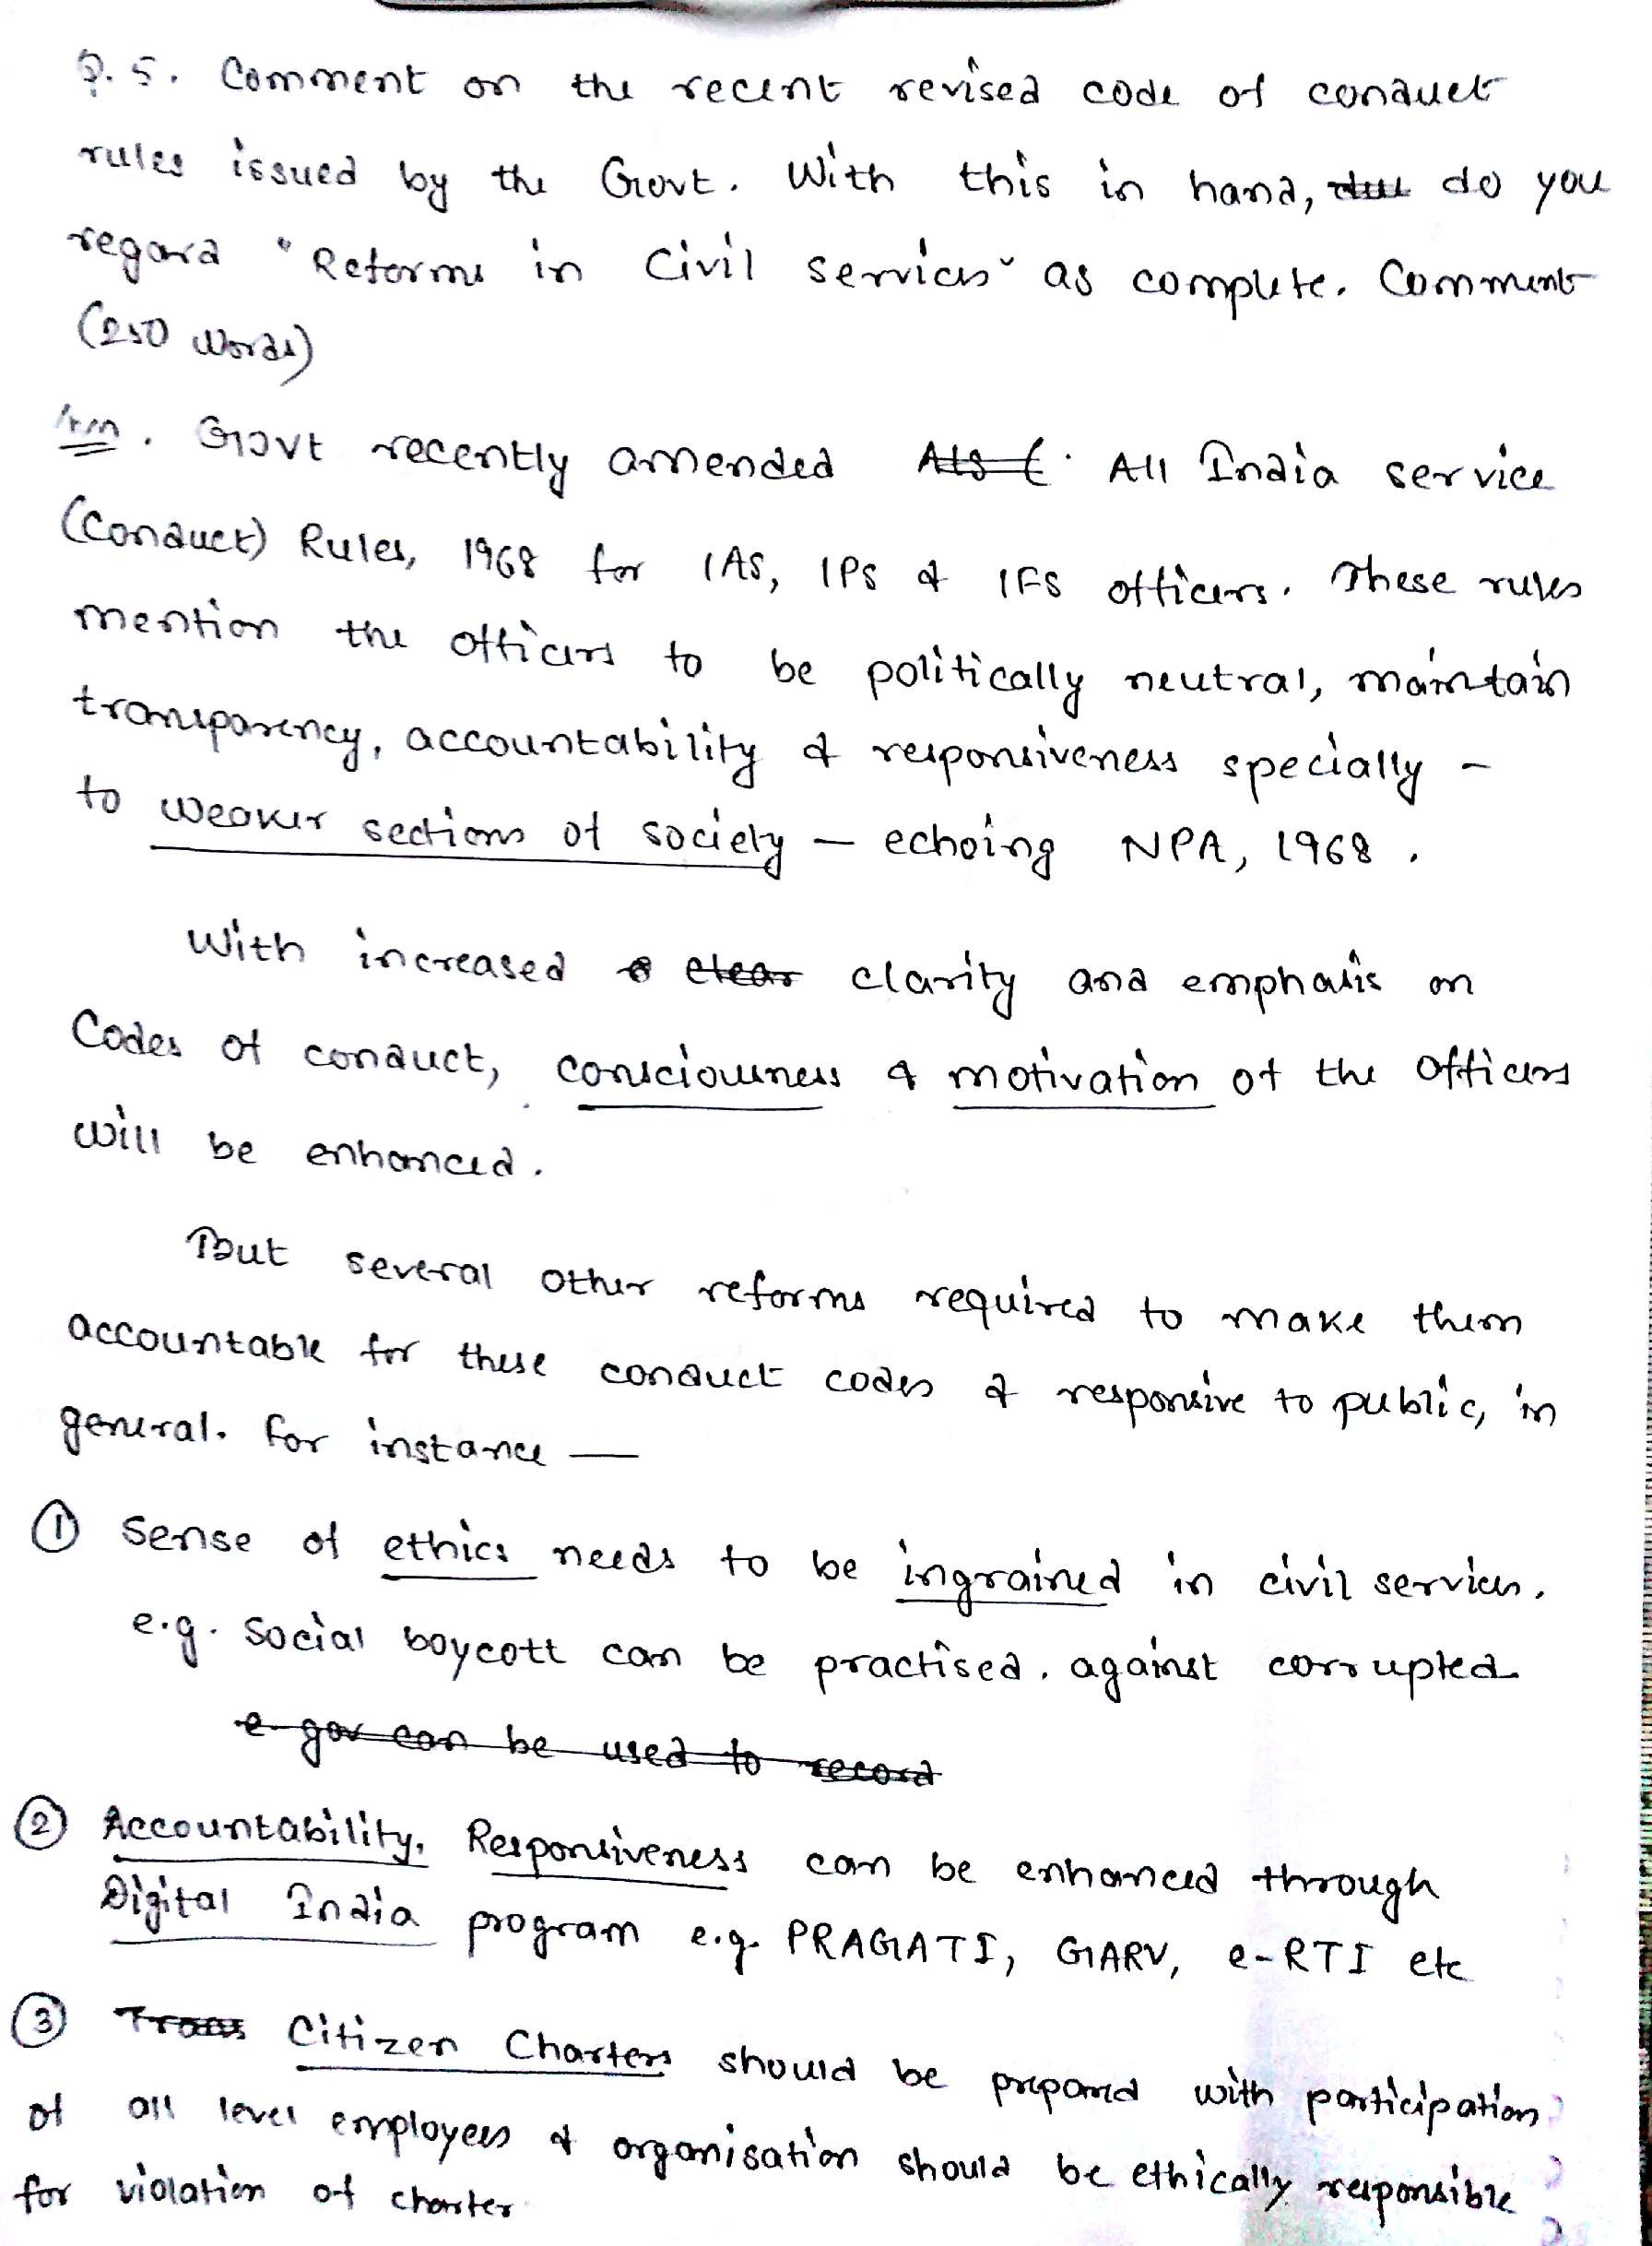 Q.5. Comment on the recent revised code of conduct
rules issued by the Govt. With this in hand, do you
regard "Reforms in Civil services" as complete. Comment
(250 words)
Ans. Govt recently amended All India service
(Conduct) Rules, 1968 for IAS, IPS & IFS officers. These rules
mention the officers to be politically neutral, maintain
transparency, accountability & responsiveness specially -
to weaker sections of society — echoing NPA, 1968.
With increased clear clarity and emphasis on
Codes of conduct, consciousness & motivation of the officers
will be enhanced.
But several other reforms required to make them
accountable for these conduct codes & responsive to public, in
general. For instance —
① Sense of ethics needs to be ingrained in civil services.
e.g. Social boycott can be practised. against corrupted
e-gov can be used to record
② Accountability, Responsiveness can be enhanced through
Digital India program e.g. PRAGATI, GARV, e-RTI etc
③ Trans Citizen Charters should be prepared with participation
of all level employees & organisation should be ethically responsible
for violation of charter